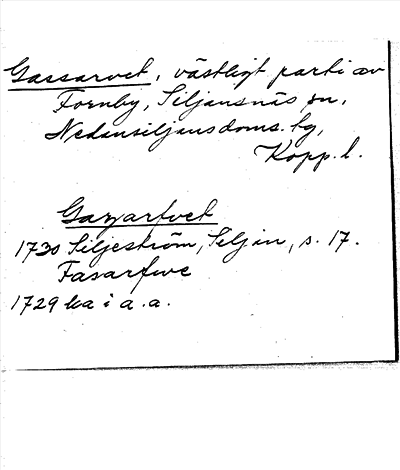 Gassarvet, västligt parti av
Fornby, Siljansnäs sn,
Nedansiljans doms. tg,
Kopp. l.
Gazzarfvet
1730 Siljeström, Seljan, s. 17.
Fasarfwe
1729 ka i a.a.